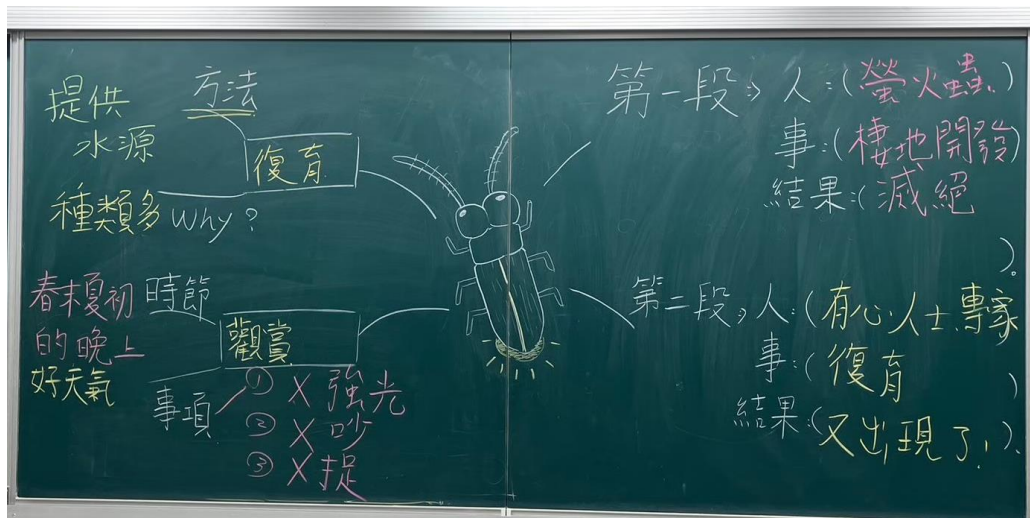 方法
提供
水源
復育
種類多 Why?
春末夏初 時節
的晚上
好天氣
觀賞
事項
① X 強光
② X 吵
③ X 捉
第一段, 人:(螢火蟲.)
事:(棲地開發)
結果:(滅絕
)。
第二段, 人:(有心人士.專家
事:(復育 )
結果:(又出現了.)。